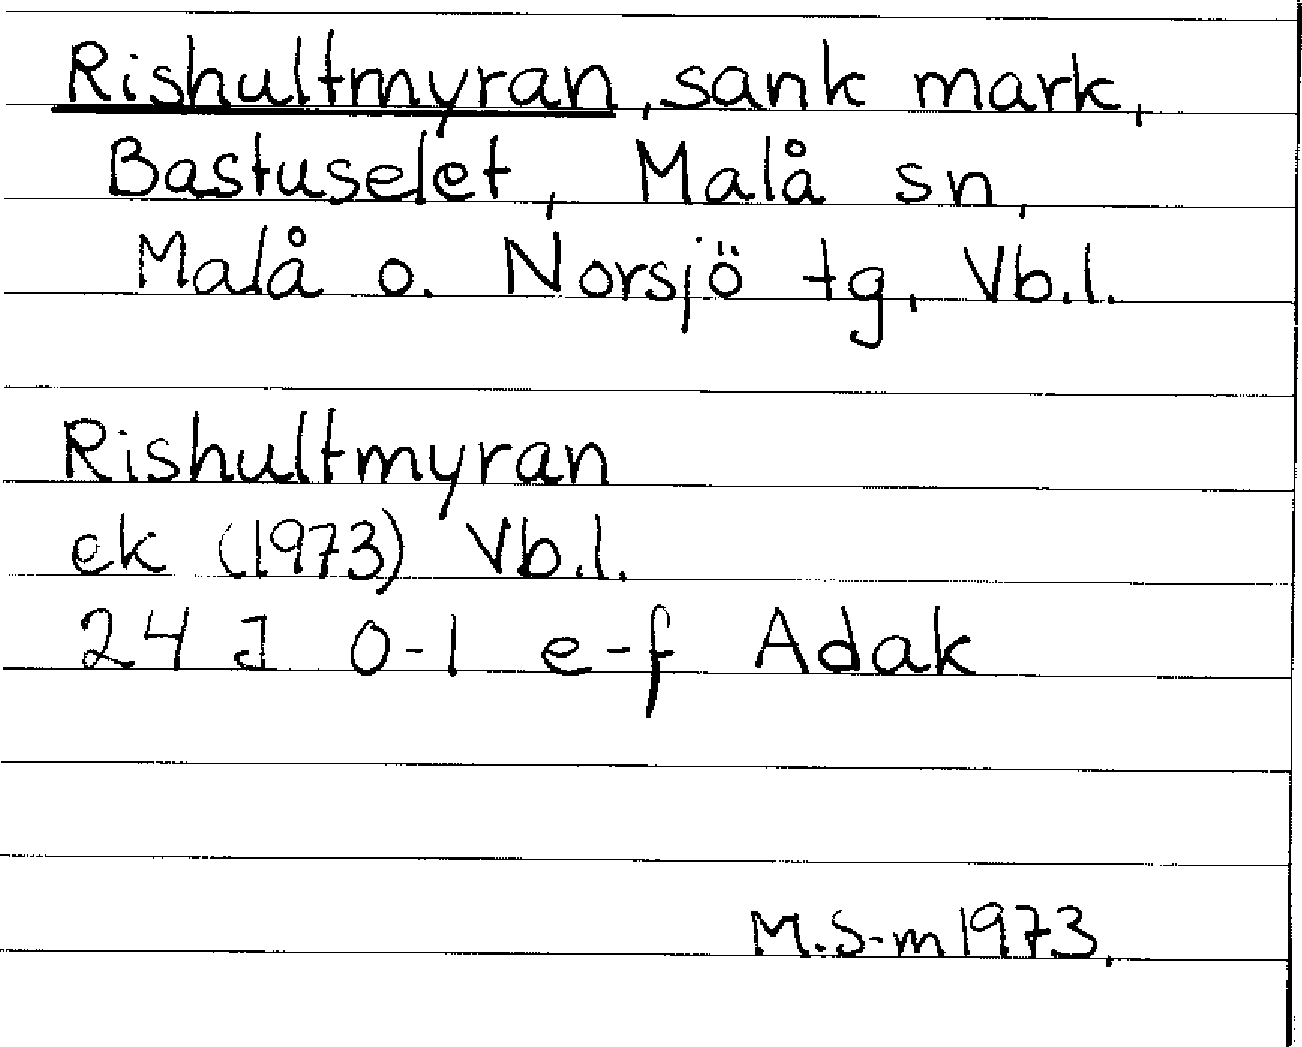 Rishultmyran, sank mark,
Bastuselet, Malå sn,
Malå o. Norsjö tg, Vb.l.
Rishultmyran
ek (1973) Vb.l.
24 J 0-1 e-f Adak
M.S-m 1973.